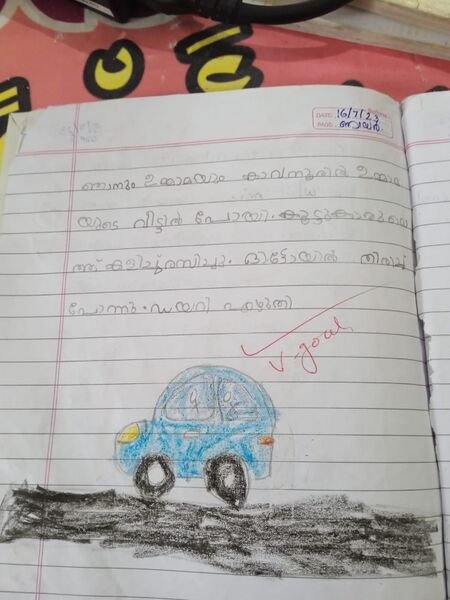 DATE: 16/7/23
PAGE: ഞായർ
ഞാനും ഉമ്മാമയും കാവനൂരിൽ ഉമ്മാമ
യുടെ വീട്ടിൽ പോയി. കൂട്ടുകാരുമൊ
ത്ത് കളിച്ചു രസിച്ചു. ഓട്ടോയിൽ തിരിച്ചു
പോന്നു. ഡയറി എഴുതി
V. good